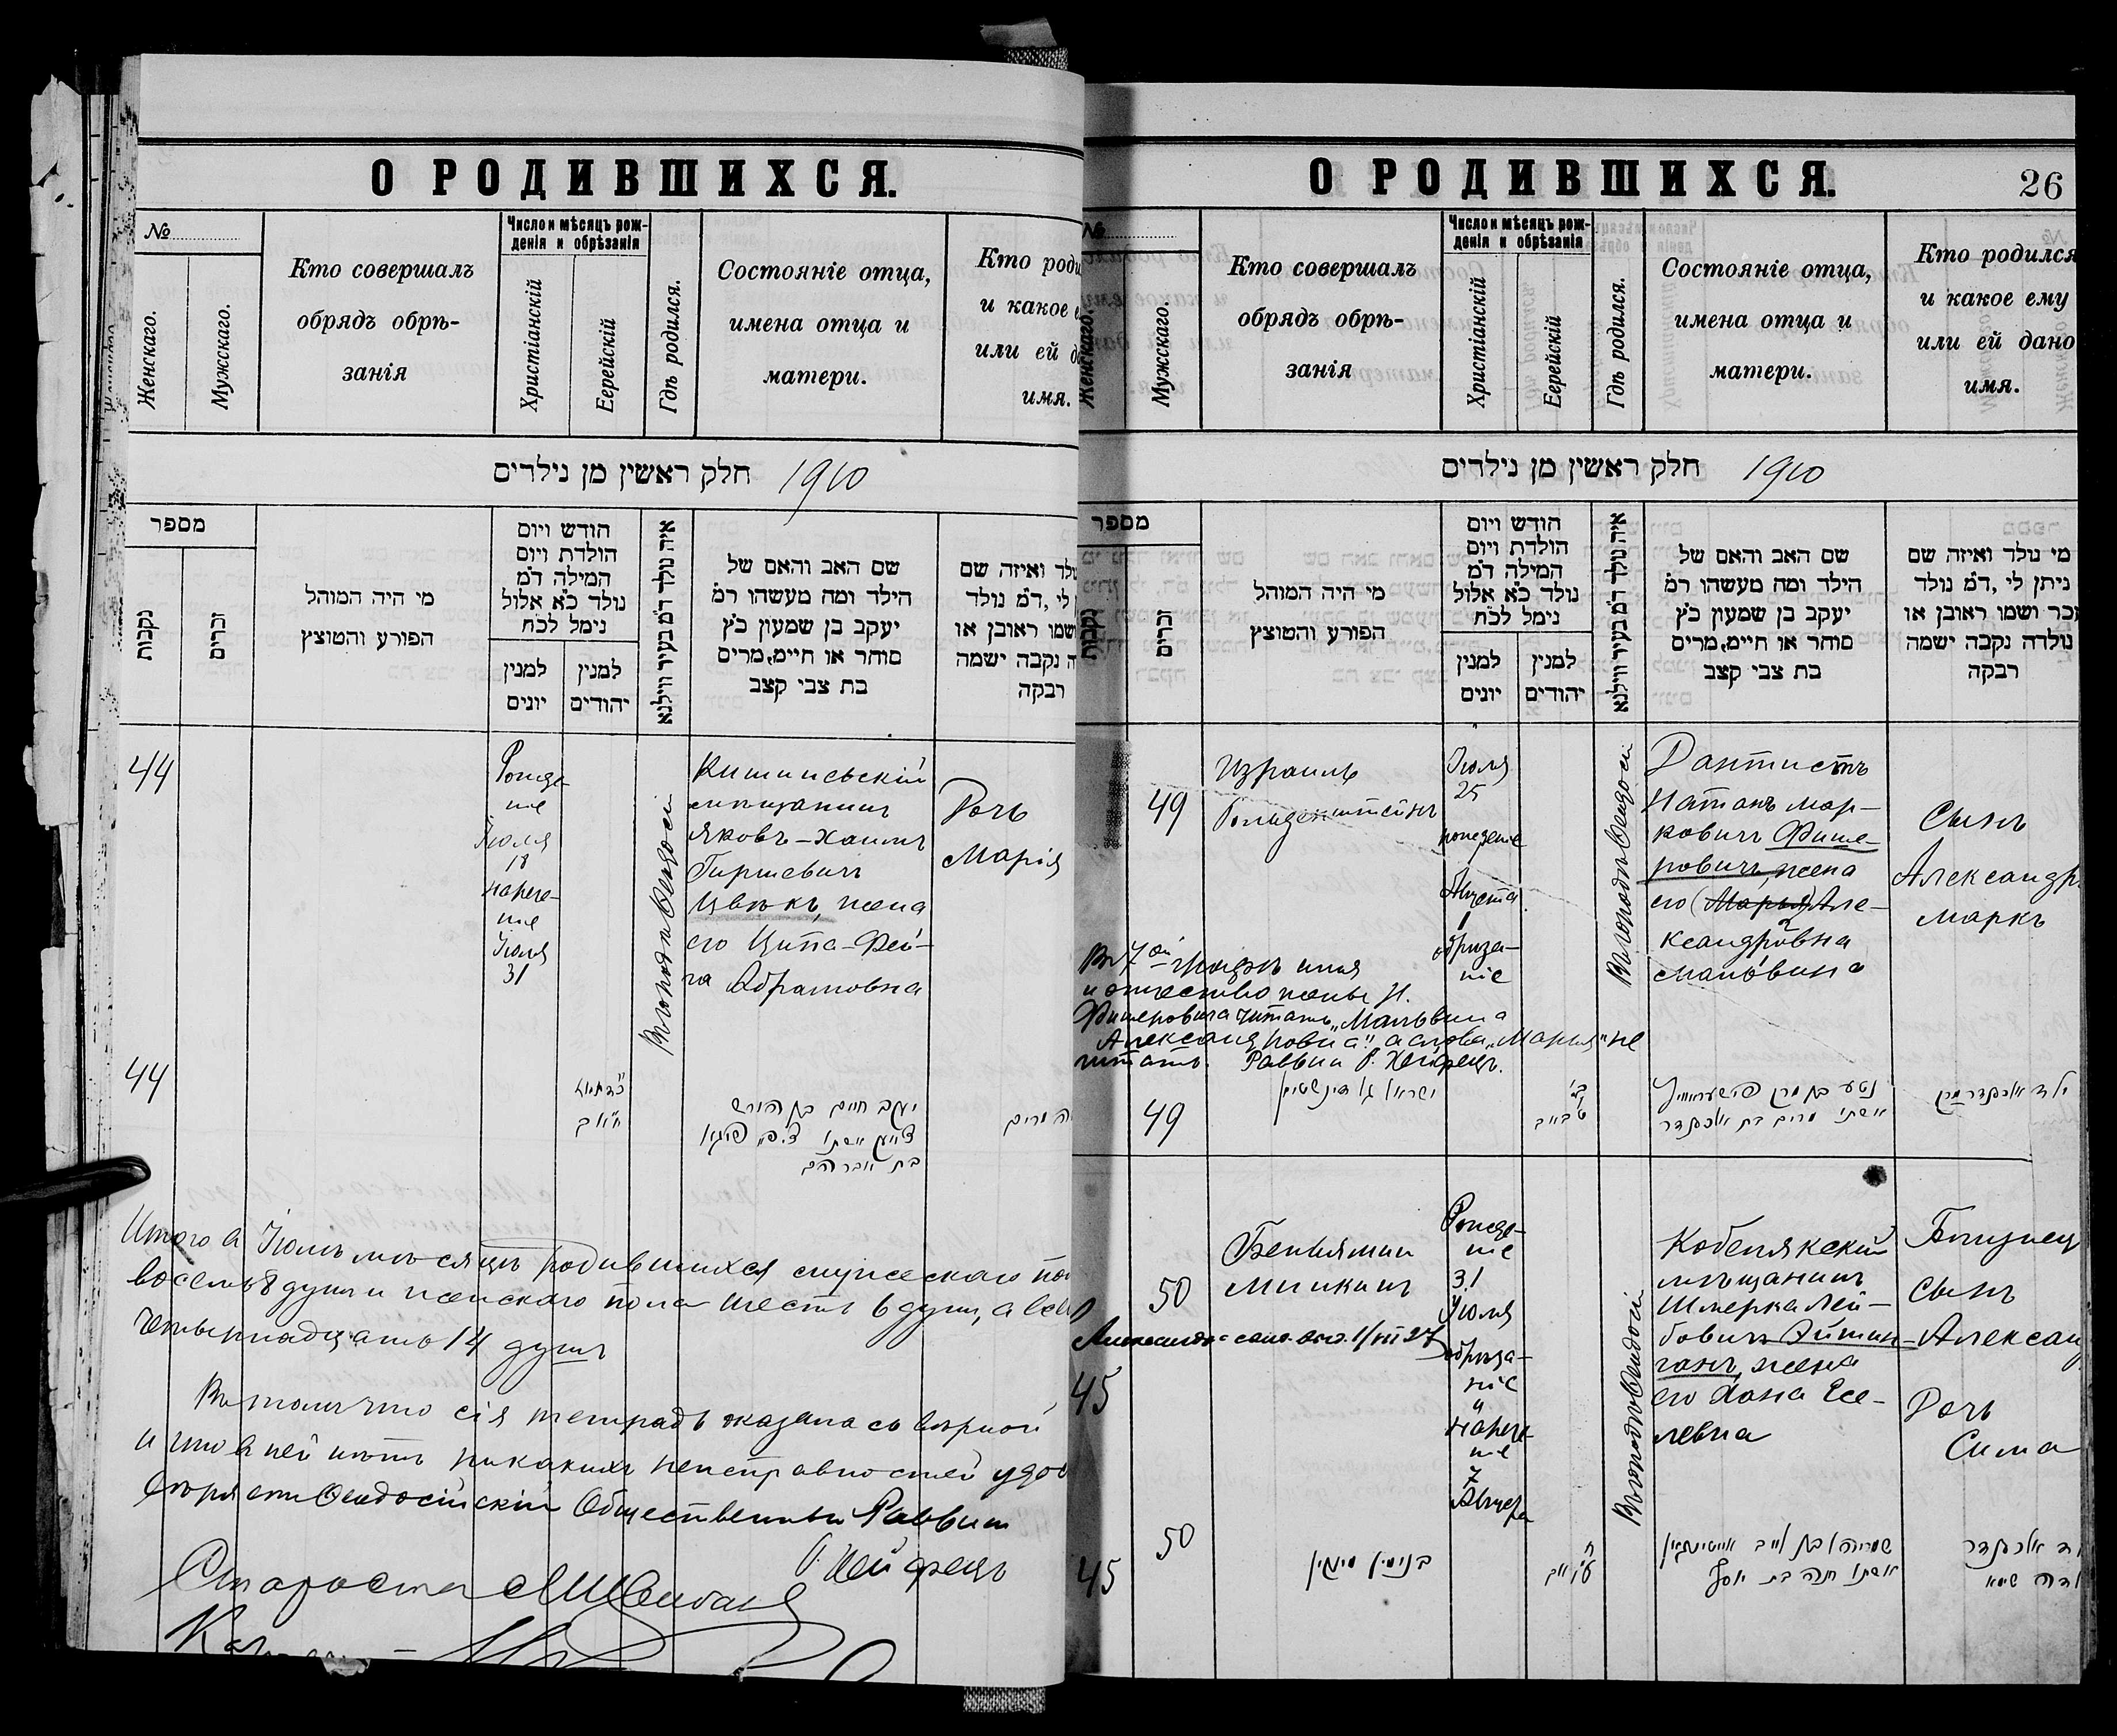 О РОДИВШИХСЯ.
№
Женскаго.
Мужскаго.
Кто совершалъ
обрядъ обрѣ-
занія
Число и мѣсяцъ рож-
денія и обрѣзанія
Христіанскій
Еерейскій
Гдѣ родился.
Состояніе отца,
имена отца и
матери.
Кто роди
и какое е
или ей д
имя.
חלק ראשין מן נילדים 1910
מספר
נקבות
זכרים
מי היה המוהל
הפורע והטוצץ
חודש ויום
הולדת ויום
המילה ד״מ
נולד כ״א אלול
נימל לכ״ח
למנין
יונים
למנין
יהודים
איה נולד ד״מ בעיר ווילנא
שם האב והאם של
הילד ומה מעשהו ר״מ
יעקב בן שמעון כ״ץ
סוחר או חיים, מרים
בת צבי קצב
לד ואיזה שם
לי, ד״מ נולד
שמו ראובן או
ה נקבה ישמה
רבקה
44
Рожде-
ніе
Іюля
18
нарече-
ніе
Іюля
31
Въ городѣ Ѳеодосіи
Кишиневскій
мѣщанинъ
Яковъ-Хаимъ
Гиршевичъ
Цвѣкъ, жена
его Ципа-Фей-
га Абрамовна
Дочь
Марія
44
יעקב חיים בן הירש
צוועק אשתו ציפא פייגא
בת אברהם
מרים
Итого въ Іюль мѣсяцъ родившихся мужескаго по
восемь 8 душъ и женскаго пола шесть 6 душъ, а все
четырнадцать 14 душъ
Въ томъ что сія тетрадь оказалась вѣрной
и что въ ней нѣтъ никакихъ неисправностей удо
вѣряетъ Ѳеодосійскій Общественный Раввинъ
Староста
О РОДИВШИХСЯ.
26
№
Женскаго.
Мужскаго.
Кто совершалъ
обрядъ обрѣ-
занія
Число и мѣсяцъ рож-
денія и обрѣзанія
Христіанскій
Еерейскій
Гдѣ родился.
Состояніе отца,
имена отца и
матери.
Кто родился
и какое ему
или ей дано
имя.
חלק ראשין מן נילדים 1910
מספר
נקבות
זכרים
מי היה המוהל
הפורע והטוצץ
חודש ויום
הולדת ויום
המילה ד״מ
נולד כ״א אלול
נימל לכ״ח
למנין
יונים
למנין
יהודים
איה נולד ד״מ בעיר ווילנא
שם האב והאם של
הילד ומה מעשהו ר״מ
יעקב בן שמעון כ״ץ
סוחר או חיים, מרים
בת צבי קצב
מי נולד ואיזה שם
ניתן לי, ד״מ נולד
זכר ושמו ראובן או
נולדה נקבה ישמה
רבקה
49
Израиль
Гольденштейнъ
Іюля
25
рожденіе
Августа
1
обрѣза-
ніе
Въ городѣ Ѳеодосіи
Дантистъ
Натанъ Мар-
ковичъ Фише-
ровичъ, жена
его (Марья) Але-
ксандровна
Мальвина
Сынъ
Александръ
Маркъ
Въ 7ой графѣ имя
и отчество жены Н.
Фишеровича читать „Мальвина
Александровна" а слова „Марья" не
читать. Раввинъ
49
אשתו מרים בת אלכסנדר
ילד אלכסנדר מרק
50
Беньяминъ
Минкинъ
Рожде-
ніе
31
Іюля
обрѣза-
ніе
и
нарече-
ніе
7
Августа
Въ городѣ Ѳеодосіи
Кобелякскій
мѣщанинъ
Шмерка Лей-
бовичъ Эйтин-
гонъ, жена
его Хана Іосе-
левна
Близнец
сынъ
Алексан
Дочь
Сима
45
50
בנימין מינקין
אשתו חנה בת יוסף
אלכסנדר
שימא
45